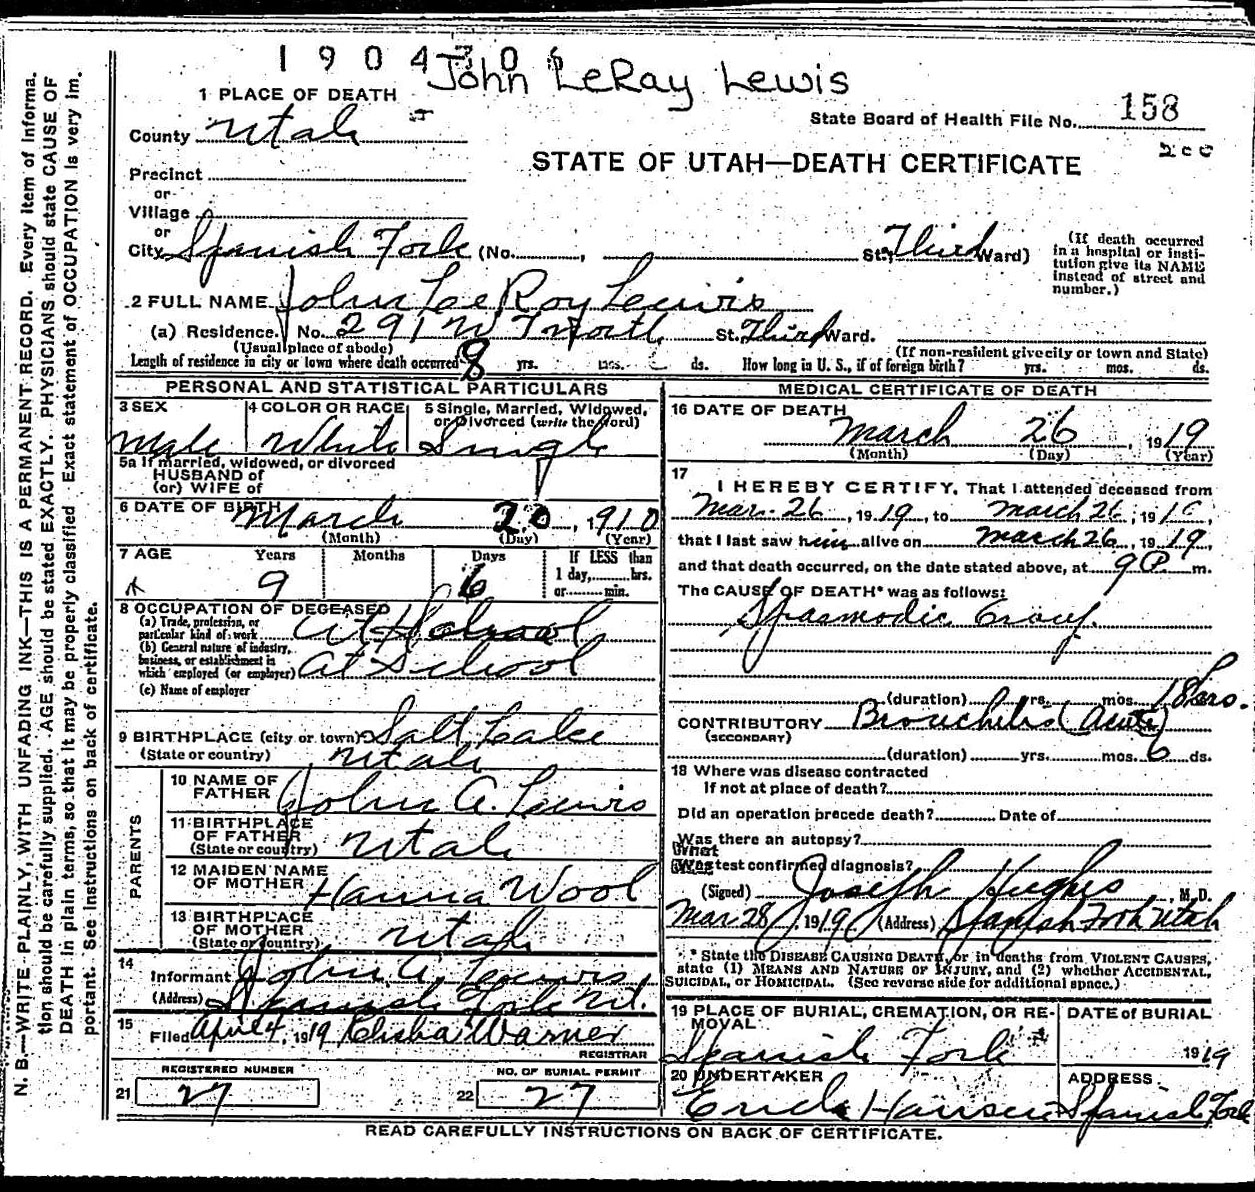 1904306
John LeRay Lewis
1 PLACE OF DEATH
County Utah
State Board of Health File No. 158
200
STATE OF UTAH—DEATH CERTIFICATE
Precinct
or
Village
or
City Spanish Fork (No. , St. Third Ward)
(If death occurred in a hospital or institution give its NAME instead of street and number.)
2 FULL NAME John LeeRoy Lewis
(a) Residence. No. 291 W North St. Third Ward.
(Usual place of abode) (If non-resident give city or town and State)
Length of residence in city or town where death occurred 8 yrs. mos. ds. How long in U. S., if of foreign birth? yrs. mos. ds.
PERSONAL AND STATISTICAL PARTICULARS
3 SEX Male
4 COLOR OR RACE White
5 Single, Married, Widowed, or Divorced (write the word) Single
5a If married, widowed, or divorced
HUSBAND of
(or) WIFE of
6 DATE OF BIRTH March 20, 1910
(Month) (Day) (Year)
7 AGE Years 9 Months Days 6 If LESS than 1 day, hrs. or min.
8 OCCUPATION OF DECEASED
(a) Trade, profession, or particular kind of work At School
(b) General nature of industry, business, or establishment in which employed (or employer) at School
(c) Name of employer
9 BIRTHPLACE (city or town) Salt Lake
(State or country) Utah
PARENTS
10 NAME OF FATHER John A. Lewis
11 BIRTHPLACE OF FATHER (State or country) Utah
12 MAIDEN NAME OF MOTHER Hanna Wool
13 BIRTHPLACE OF MOTHER (State or country) Utah
14 Informant John A. Lewis
(Address) Spanish Fork Ut.
15 Filed April 4, 1919 Elisha Warner
REGISTRAR
REGISTERED NUMBER
21 27
NO. OF BURIAL PERMIT
22 27
MEDICAL CERTIFICATE OF DEATH
16 DATE OF DEATH March 26, 1919
(Month) (Day) (Year)
17 I HEREBY CERTIFY, That I attended deceased from
Mar. 26, 1919, to March 26, 191
that I last saw him alive on March 26, 1919,
and that death occurred, on the date stated above, at 9 P m.
The CAUSE OF DEATH* was as follows:
Spasmodic Croup.
(duration) yrs. mos. 18 hrs.
CONTRIBUTORY Bronchitis (Acute)
(SECONDARY)
(duration) yrs. mos. 6 ds.
18 Where was disease contracted
If not at place of death?
Did an operation precede death? Date of
Was there an autopsy?
What test confirmed diagnosis?
(Signed) Joseph Hughes, M. D.
Mar 28, 1919 (Address) Spanish Fork Utah
* State the DISEASE CAUSING DEATH, or in deaths from VIOLENT CAUSES, state (1) MEANS AND NATURE OF INJURY, and (2) whether ACCIDENTAL, SUICIDAL, or HOMICIDAL. (See reverse side for additional space.)
19 PLACE OF BURIAL, CREMATION, OR REMOVAL Spanish Fork
DATE of BURIAL 1919
20 UNDERTAKER Erick Hansen
ADDRESS Spanish Fork
READ CAREFULLY INSTRUCTIONS ON BACK OF CERTIFICATE.
N. B.—WRITE PLAINLY, WITH UNFADING INK—THIS IS A PERMANENT RECORD. Every item of informa.
tion should be carefully supplied. AGE should be stated EXACTLY. PHYSICIANS should state CAUSE OF
DEATH in plain terms, so that it may be properly classified. Exact statement of OCCUPATION is very im.
portant. See instructions on back of certificate.